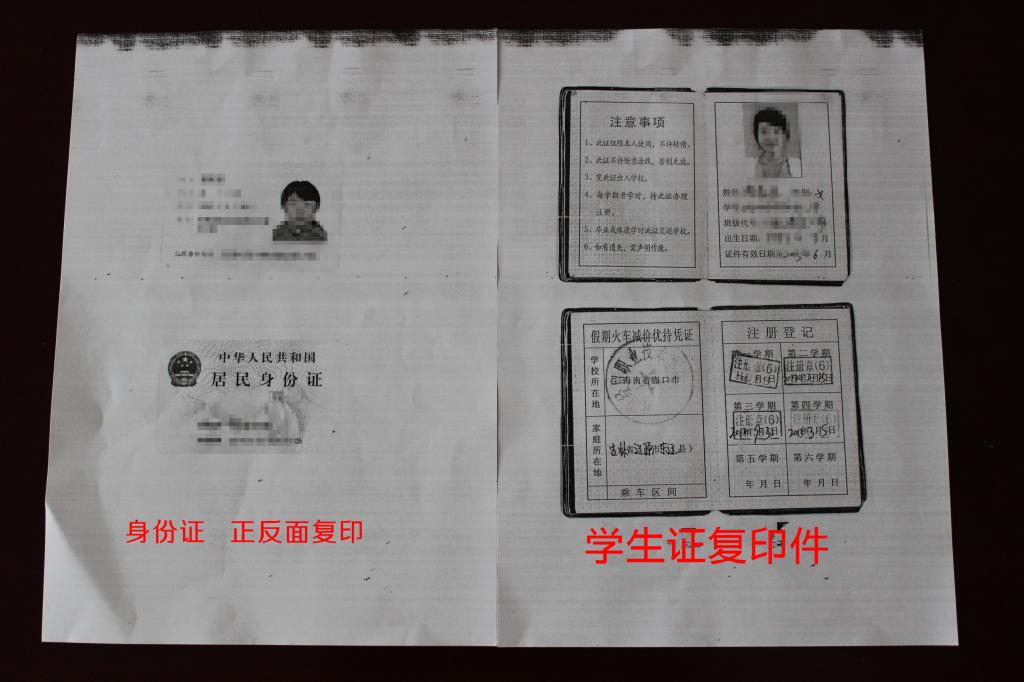 公民身份号码
中华人民共和国
居民身份证
05
身份证 正反面复印
注意事项
1、此证仅限本人使用，不许转借。
2、此证不许任意涂改，否则无效。
3、凭此证出入学校。
4、每学期开学时，持此证办理
注册。
5、毕业或休退学时此证交还学校。
6、如有遗失，需声明作废。
姓名
学号
班级代号
出生日期： 月
证件有效日期至 年6月
假期火车减价优待凭证
学校所在地
海南省海口市
家庭所在地
吉林省辽源市东辽县）
乘车区间
注册登记
第一学期 第二学期
注册章(6) 注册章(6)
第三学期 第四学期
注册章(6) 注册章(6)
第五学期 第六学期
年月日 年月日
学生证复印件